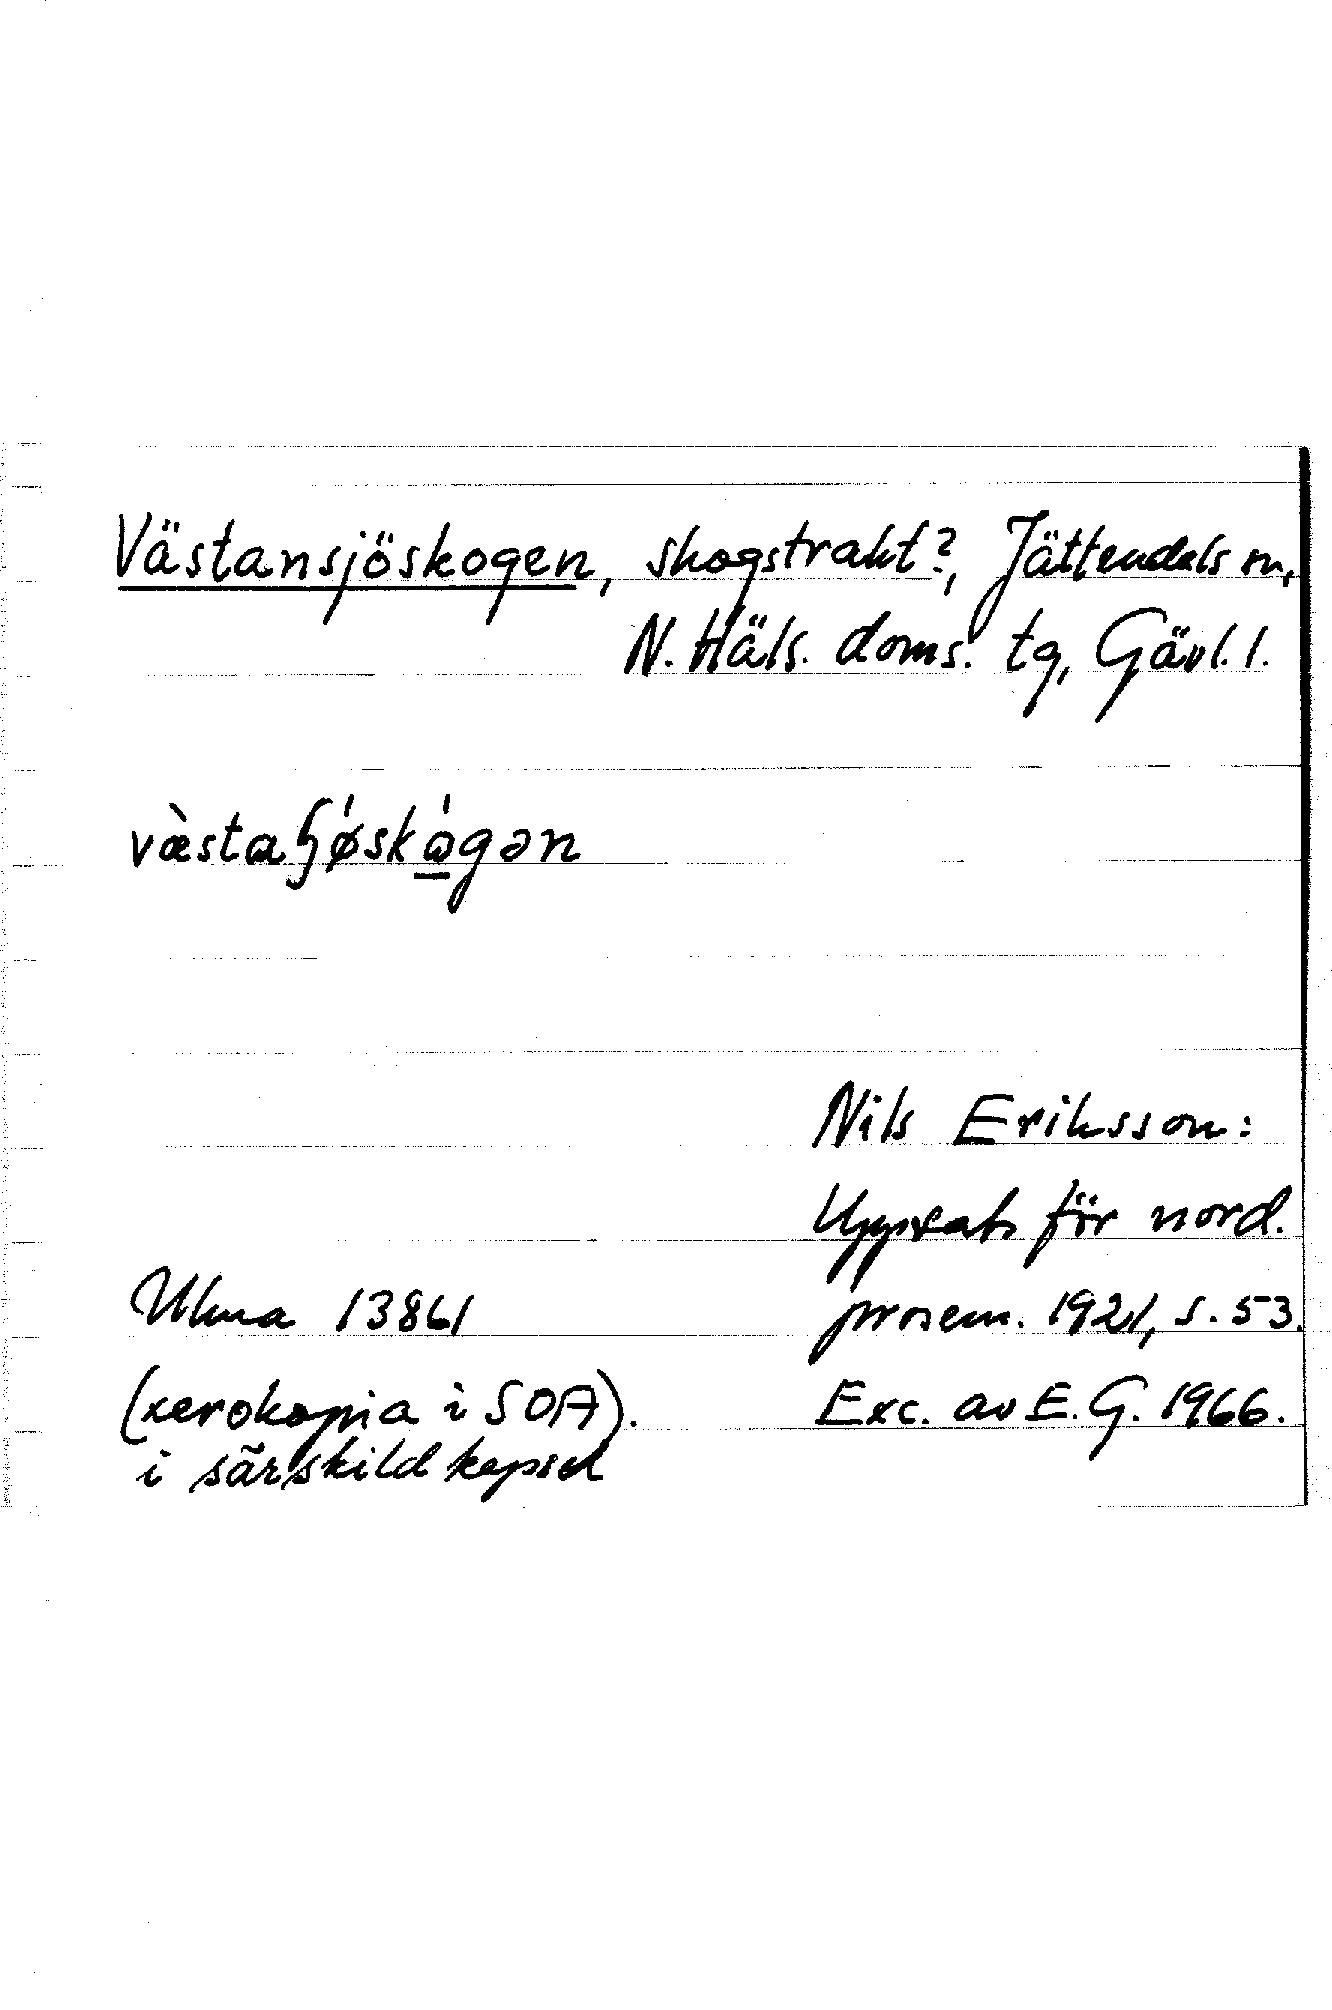 Västansjöskogen, skogstrakt?, Jättendals sn,
N. Häls. doms. tg, Gävl. l.
væ̀staɧǿskǫ́gən
Nils Eriksson:
Uppsats för nord.
Ulma 13861 prosem. 1921, s. 53.
(xerokopia i SOA). Exc. av E. G. 1966.
i särskild kapsel